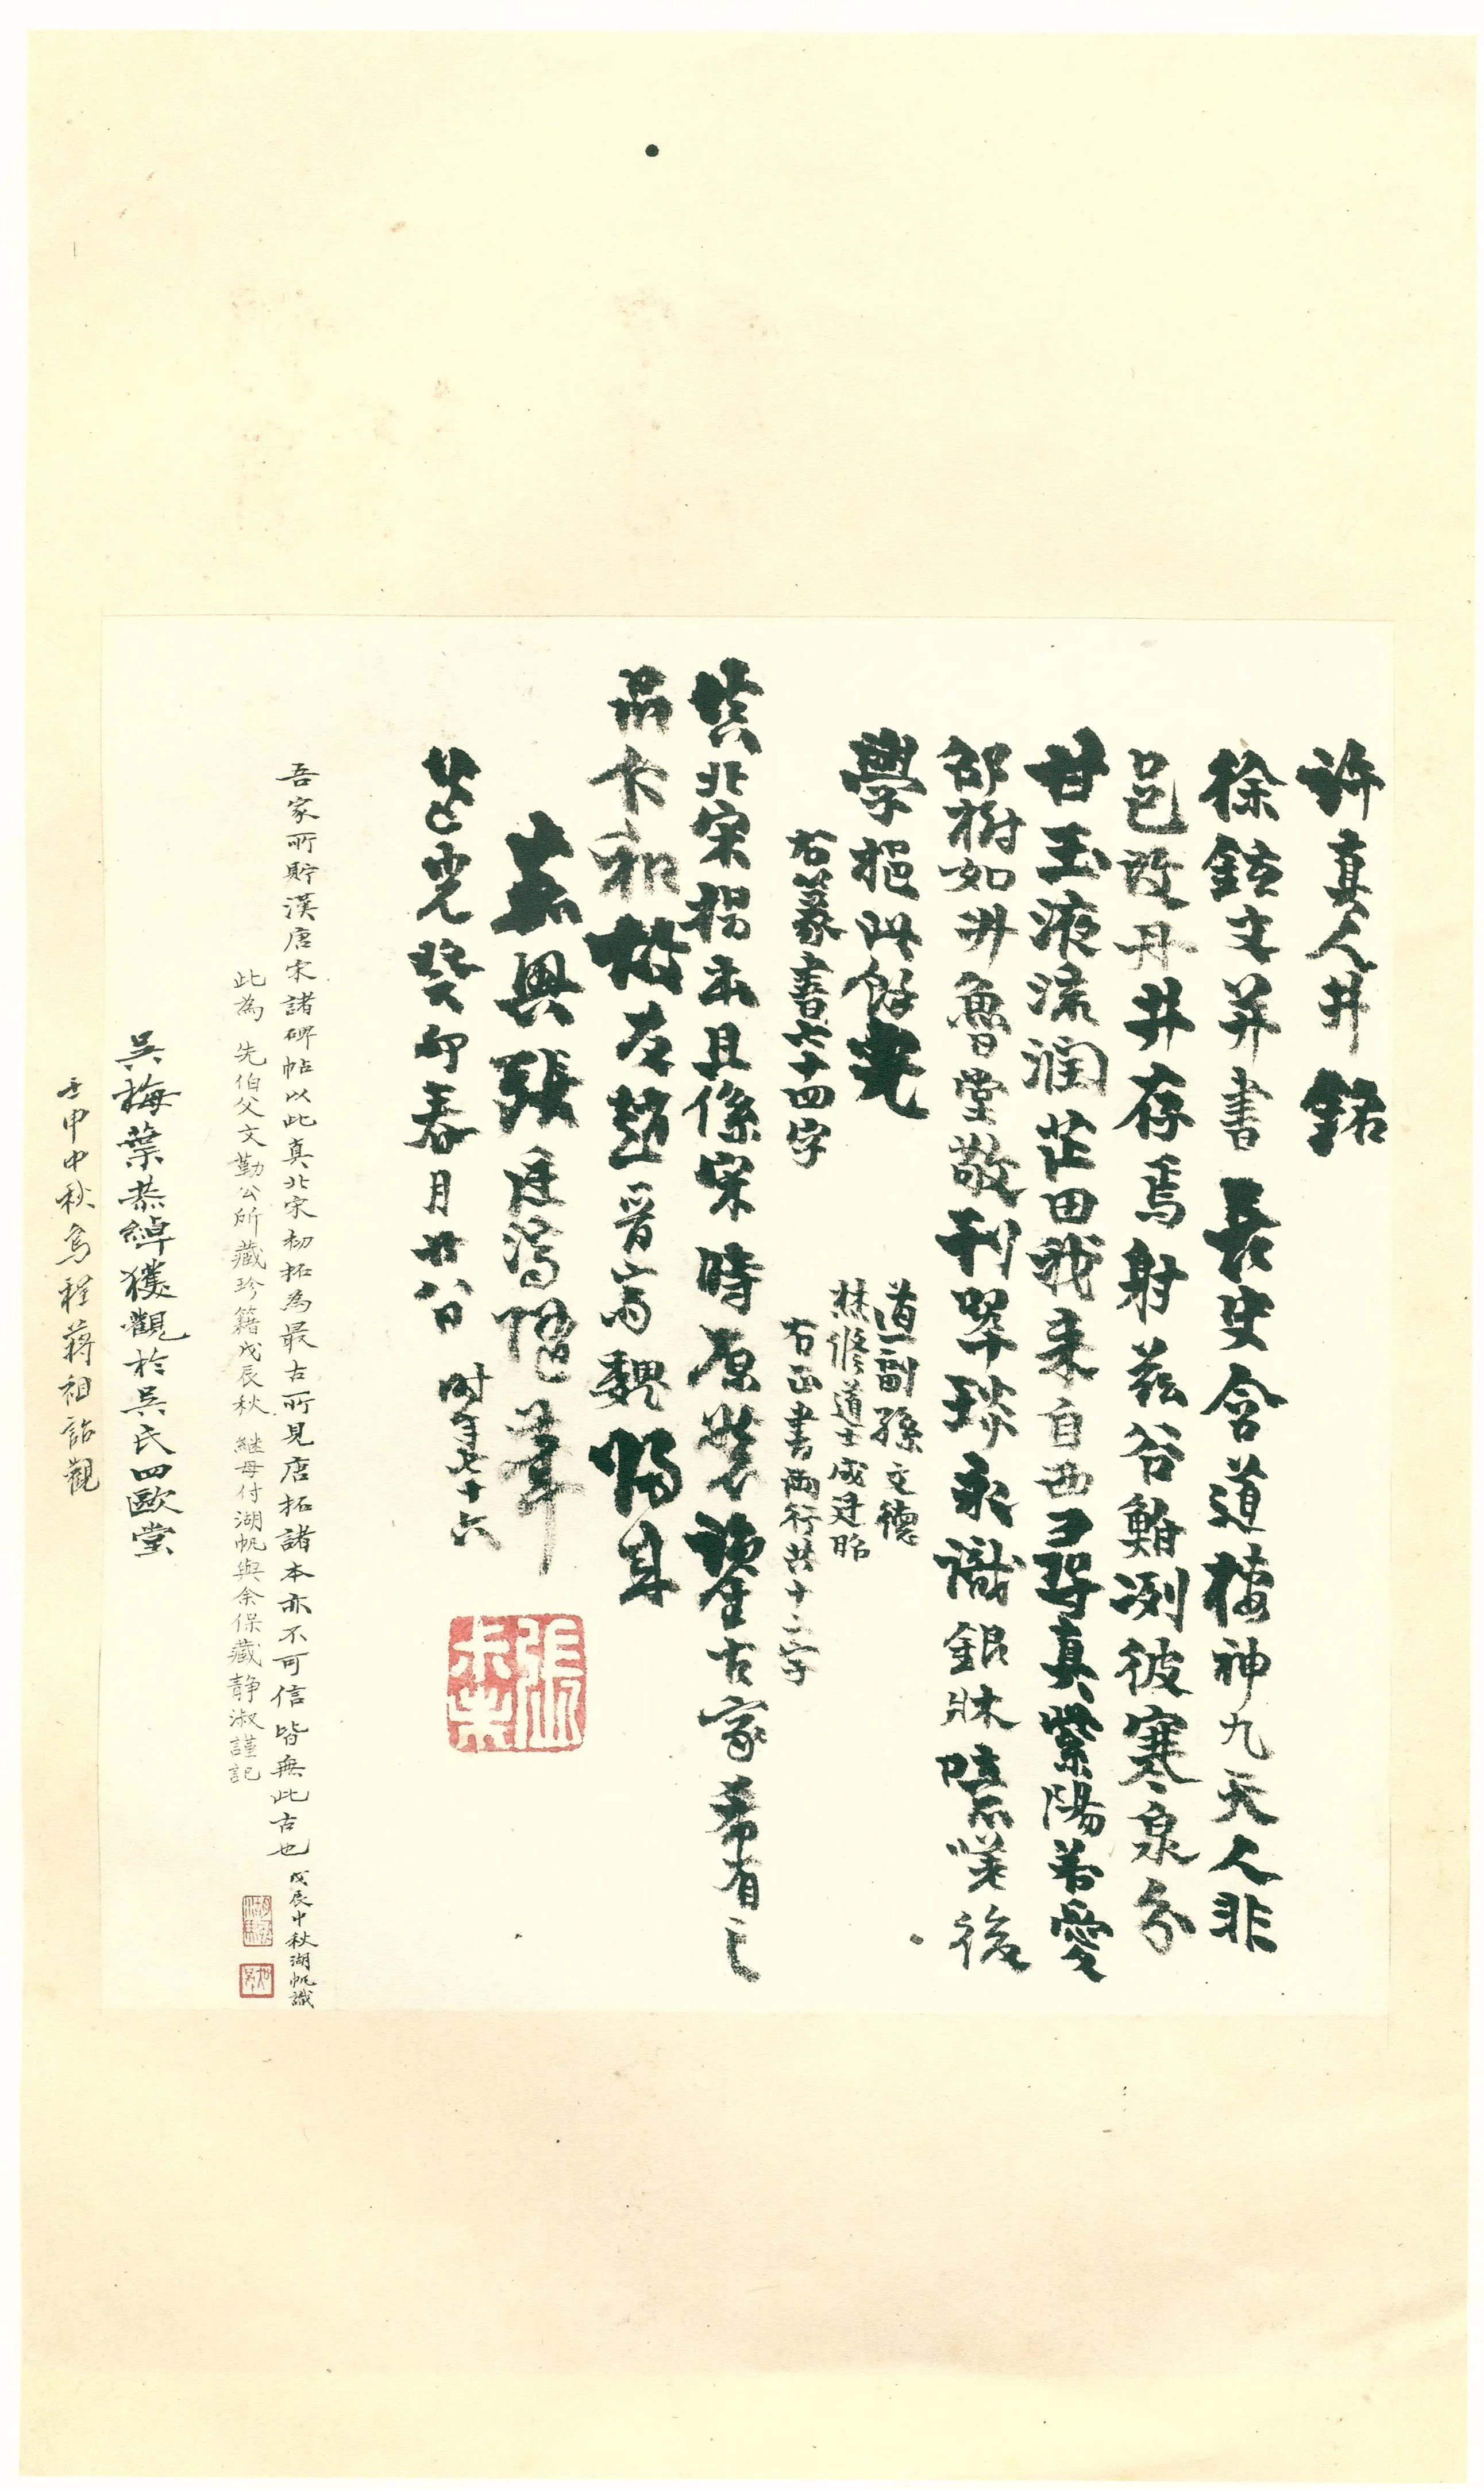 許真人井銘
徐鉉文并書 長史含道棲神九天人非
邑改丹井存焉射茲谷鮒冽彼寒泉分
甘玉液流潤芷田我來自西尋真紫陽若愛
邵樹如升魯堂敬刊翠琰永識銀牀噫嘻後
學挹此餘光
道副孫文德
林脩道士成廷昭
右篆書六十四字
右正書兩行共十二字
此北宋搨本且係宋時原裝鑒古家希有之
品卞和投友趙晋齋魏賜耳
嘉興張廷濟叔未筆
道光癸卯春月廿八日 時年七十六
吾家所貯漢唐宋諸碑帖以此真北宋初拓為最古所見唐拓諸本亦不可信皆無此古也 戊辰中秋湖帆識
此為 先伯父文勤公所藏珍籍戊辰秋 繼母付湖帆與余保藏靜淑謹記
吳梅葉恭綽獲觀於吳氏四歐堂
壬申中秋烏程蔣祖詒觀